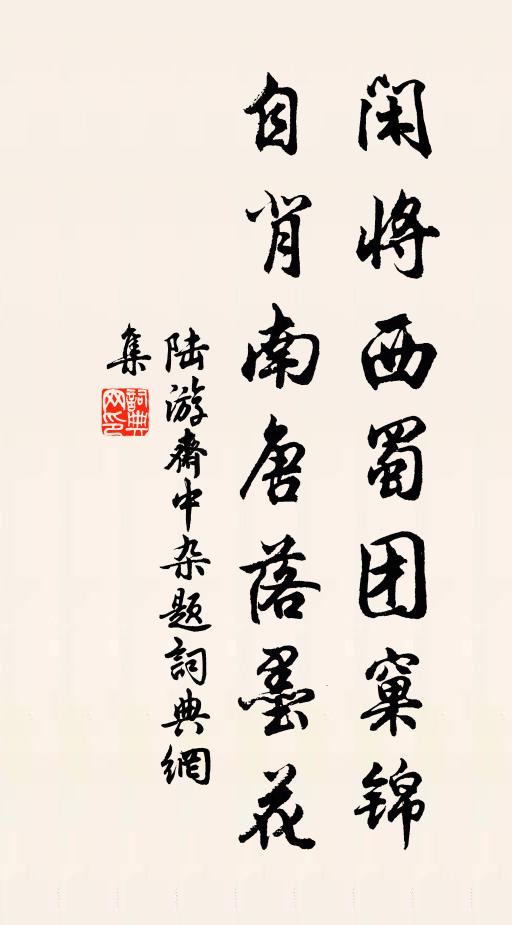 闲将西蜀团窠锦
自背南唐落墨花
陆游斋中杂题詞典網
集
詞典
网印